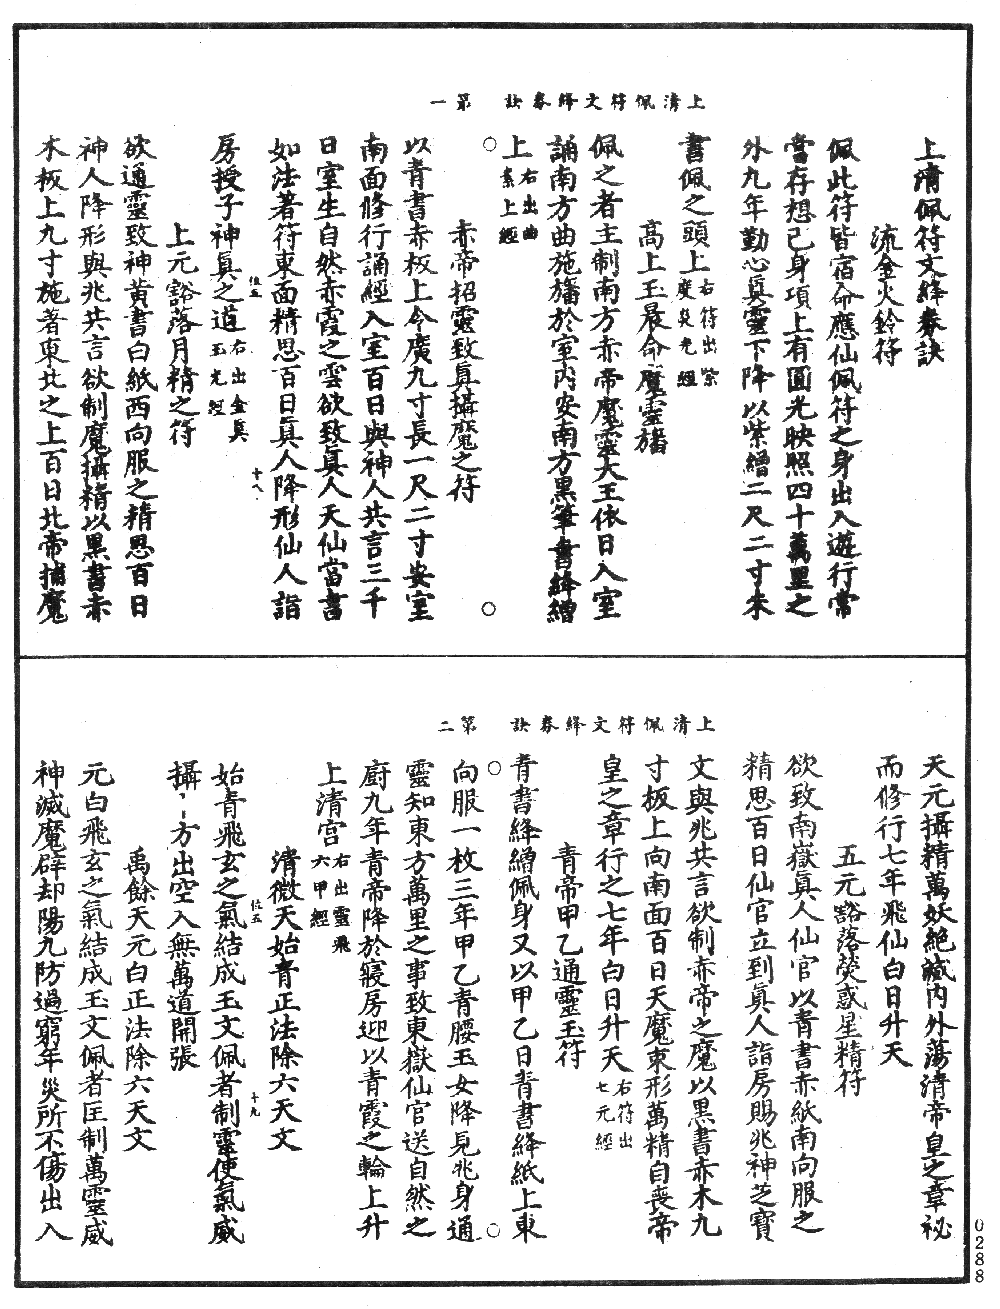 上清佩符文絳券訣　第一
上清佩符文絳券訣
流金火鈴符
佩此符皆宿命應仙佩符之身出入遊行常
當存想己身項上有圓光映照四十萬里之
外九年勤心真靈下降以紫繒二尺二寸朱
書佩之頭上右符出紫度炎光經
高上玉晨命魔靈旛
佩之者主制南方赤帝魔靈大王依日入室
誦南方曲施旛於室內安南方黑筆書絳繒
上右出曲素上經
赤帝招靈致真攝魔之符
以青書赤板上令廣九寸長一尺二寸安室
南面修行誦經入室百日與神人共言三千
日室生自然赤霞之雲欲致真人天仙當書
如法著符東面精思百日真人降形仙人詣
位五　十八
房授子神真之道右出金真玉光經
上元豁落月精之符
欲通靈致神黃書白紙西向服之精思百日
神人降形與兆共言欲制魔攝精以黑書赤
木板上九寸施著東北之上百日北帝捕魔
上清佩符文絳券訣　第二
天元攝精萬妖絶滅內外蕩清帝皇之章祕
而修行七年飛仙白日升天
五元豁落熒惑星精符
欲致南嶽真人仙官以青書赤紙南向服之
精思百日仙官立到真人詣房賜兆神芝寶
文與兆共言欲制赤帝之魔以黑書赤木九
寸板上向南面百日天魔束形萬精自喪帝
皇之章行之七年白日升天右符出七元經
青帝甲乙通靈玉符
青書絳繒佩身又以甲乙日青書絳紙上東
向服一枚三年甲乙青腰玉女降見兆身通
靈知東方萬里之事致東嶽仙官送自然之
廚九年青帝降於寢房迎以青霞之輪上升
上清宮右出靈飛六甲經
清微天始青正法除六天文
位五　十九
始青飛玄之氣結成玉文佩者制靈使氣威
攝一方出空入無萬道開張
禹餘天元白正法除六天文
元白飛玄之氣結成玉文佩者匡制萬靈威
神滅魔辟却陽九防過窮年災所不傷出入
0288